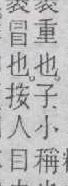 重也。子小稱
冒也。按人目